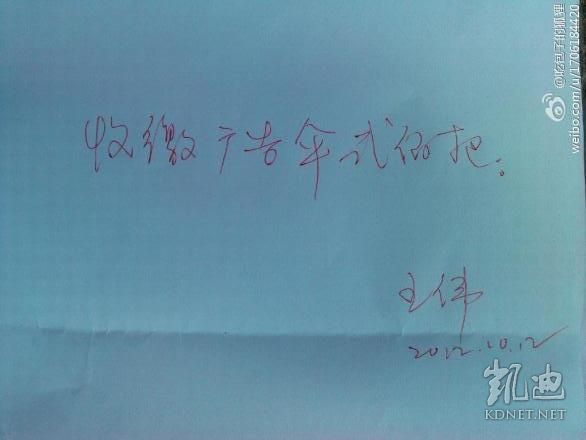 收缴广告伞贰佰把.
王伟
2012.10.12
@吃包子的狐狸
weibo.com/u/1706184420
凯迪
KDNET.NET